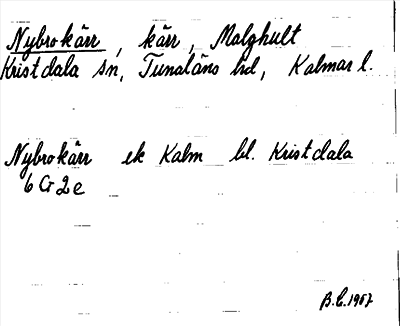 Nybrokärr, kärr, Malghult
Kristdala sn, Tunaläns hd, Kalmar l.
Nybrokärr ek Kalm bl. Kristdala
6 G 2 e
B.E. 1957